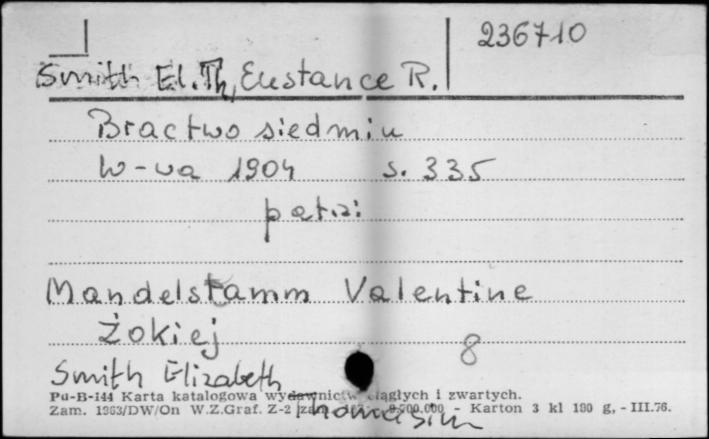 236710
Smith El. Th, Eustance R.
Bractwo siedmiu
W-wa 1904 s. 335
patrz:
Mandelstamm Valentine
Żokiej
8
Smith Elizabeth
Thomasina
Pu-B-144 Karta katalogowa wydawnictw ciągłych i zwartych.
Zam. 1363/DW/On W.Z.Graf. Z-2 zam. 9.000.000 - Karton 3 kl 180 g, - III.76.